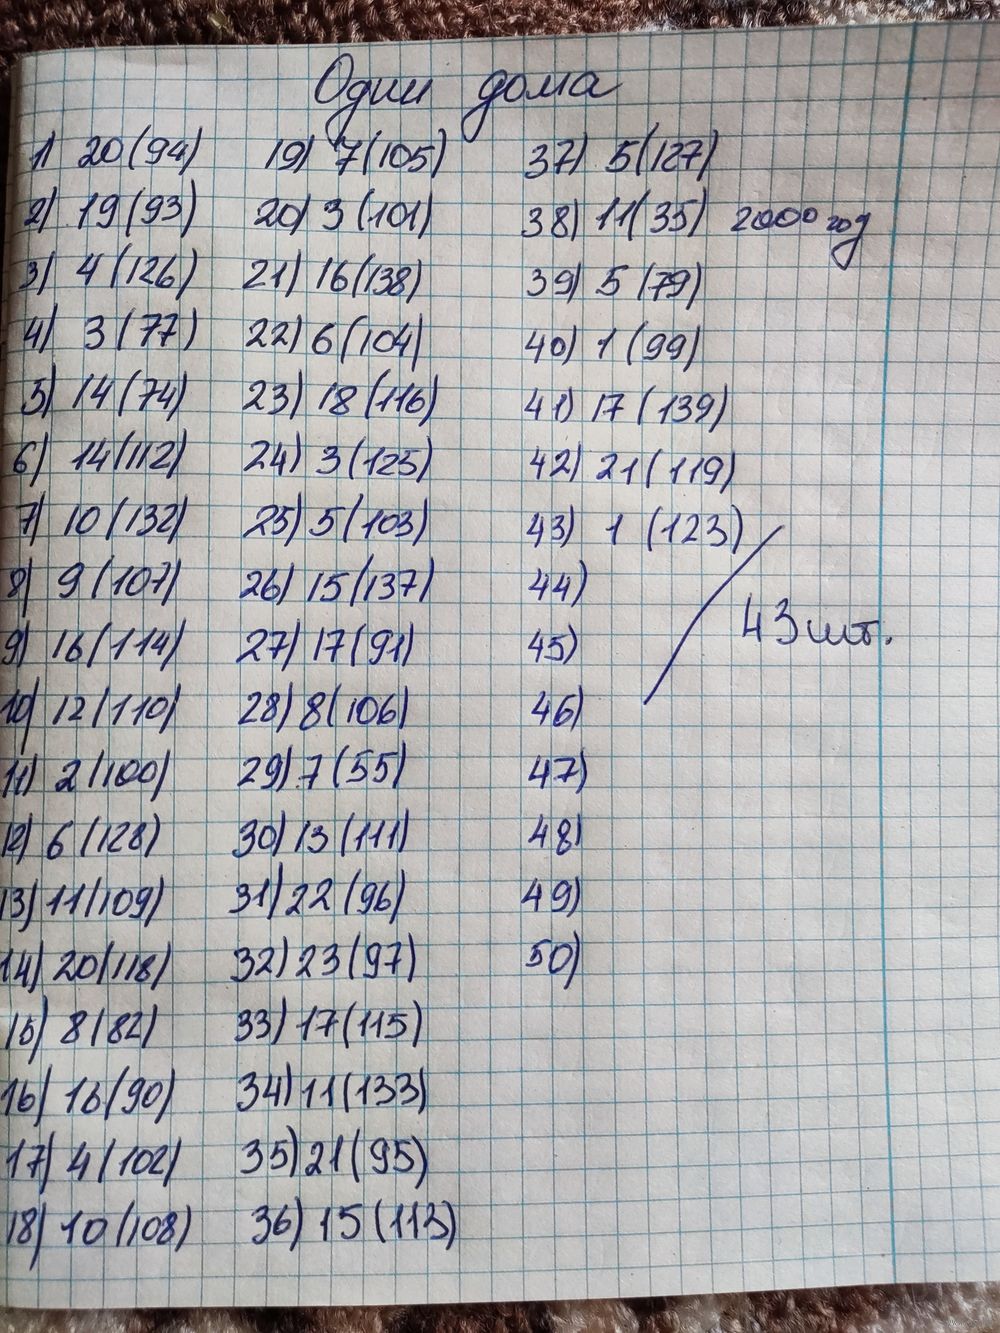 Один дома
1) 20 (94)
2) 19 (93)
3) 4 (126)
4) 3 (77)
5) 14 (74)
6) 14 (112)
7) 10 (132)
8) 9 (107)
9) 16 (114)
10) 12 (110)
11) 2 (100)
12) 6 (128)
13) 11 (109)
14) 20 (118)
15) 8 (82)
16) 16 (90)
17) 4 (102)
18) 10 (108)
19) 7 (105)
20) 3 (101)
21) 16 (138)
22) 6 (104)
23) 18 (116)
24) 3 (125)
25) 5 (103)
26) 15 (137)
27) 17 (91)
28) 8 (106)
29) 7 (55)
30) 13 (111)
31) 22 (96)
32) 23 (97)
33) 17 (115)
34) 11 (133)
35) 21 (95)
36) 15 (113)
37) 5 (127)
38) 11 (35) 2000 год
39) 5 (79)
40) 1 (99)
41) 17 (139)
42) 21 (119)
43) 1 (123)
44)
45)
46)
47)
48)
49)
50)
43 шт.